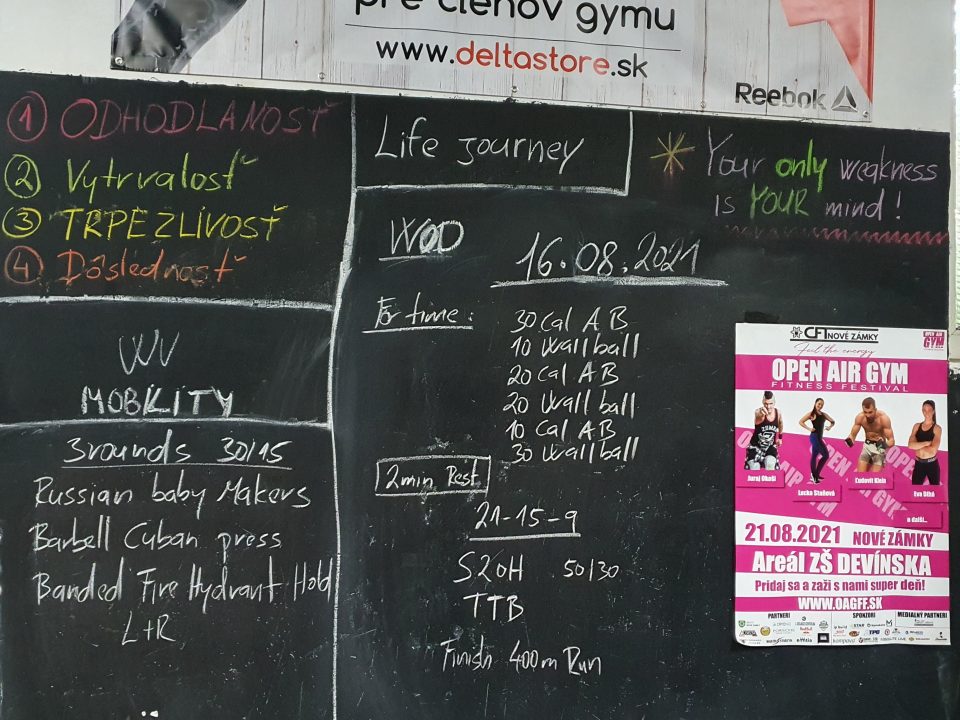 pre členov gymu
www.deltastore.sk
Reebok
1 ODHODLANOSŤ
2 Vytrvalosť
3 TRPEZLIVOSŤ
4 Dôslednosť
WV
MOBILITY
3rounds 30/15
Russian baby Makers
Barbell Cuban press
Banded Fire Hydrant Hold
L+R
Life journey
WOD
16.08.2021
For time:
30 Cal AB
10 Wallball
20 Cal AB
20 Wallball
10 Cal AB
30 Wallball
2min Rest
21-15-9
S2OH 50/30
TTB
Finish 400m Run
* Your only weakness
is YOUR mind!
CFT NOVÉ ZÁMKY
OPEN AIR
GYM
Feel the energy
OPEN AIR GYM
FITNESS FESTIVAL
OPEN AIR GYM
OPEN AIR GYM
Juraj Okoši
Lucka Stašová
Ľudovít Klein
Eva Dibá
a ďalší...
21.08.2021 NOVÉ ZÁMKY
Areál ZŠ DEVÍNSKA
Pridaj sa a zaži s nami super deň!
WWW.OAGFF.SK
PARTNERI
SPONZORI
MEDIÁLNY PARTNERI